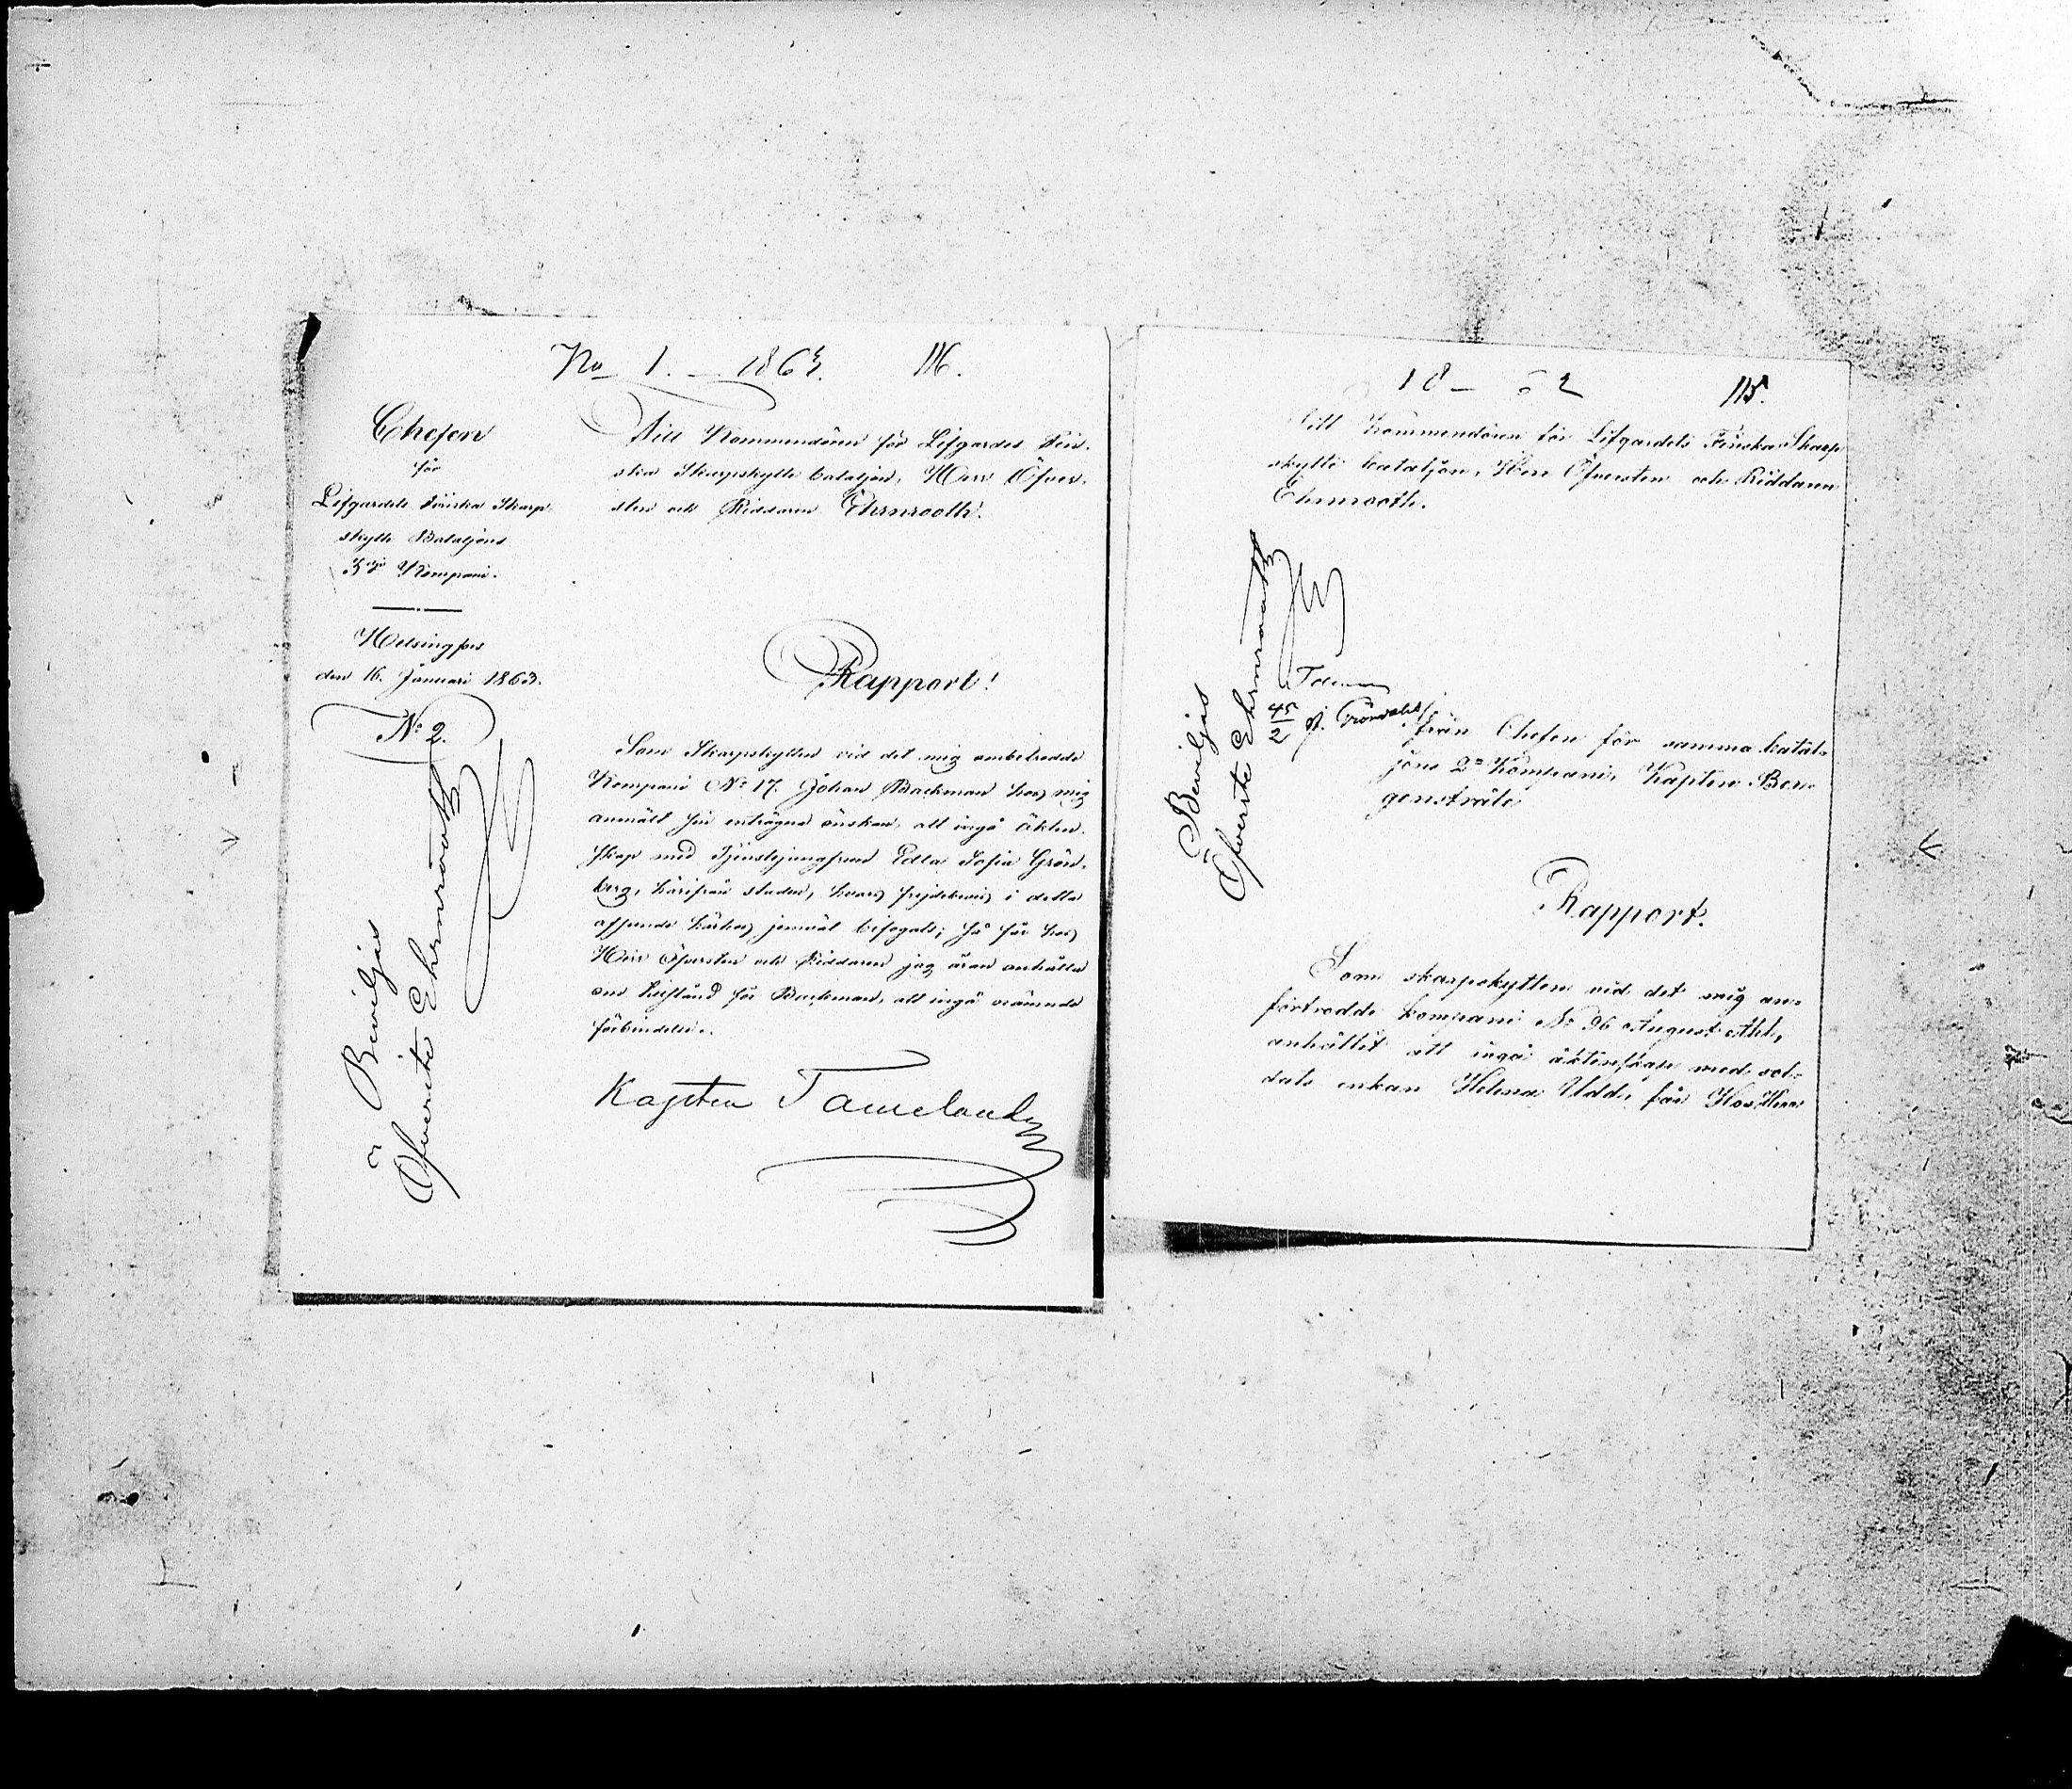 No 1. – 1863. 116.
Chefen
för
Lifgardets Finska Skarp
skytte Bataljons
3dje Kompani.
Helsingfors
den 16. Januari 1863.
No 2.
Till Kommendören för Lifgardets Fin-
ska Skarpskytte bataljon, Herr Öfver-
sten och Riddaren Ehrnrooth.
Rapport!
Som Skarpskytten vid det mig anbetrodde
Kompani No 17. Johan Backman hos mig
anmält sin enträgna önskan, att ingå äkten-
skap med Tjenstejungfrun Edla Sofia Grön-
berg, härifrån staden, hvars frejdebevis i detta
afseende härhos jemväl bifogats; så får hos
Herr Öfversten och Riddaren jag äran anhålla
om tillstånd för Backman, att ingå nämnde
förbindelse.
Kapten Tamelander
Beviljas
Öfverste Ehrnrooth
18 – 62 115.
Till Kommendören för Lifgardets Finska Skarp
skytte bataljon, Herr Öfversten och Riddaren
Ehrnrooth.
Beviljas
Öfverste Ehrnrooth
45
2
från Chefen för samma batal-
jons 2a Kompani, Kapten Bon-
genstråle
Rapport.
Som skarpskytten vid det mig an-
förtrodde kompani No 96 August Ahl,
anhållit att ingå äktenskap med sol-
dats enkan Helena Udd, får Hos Herr